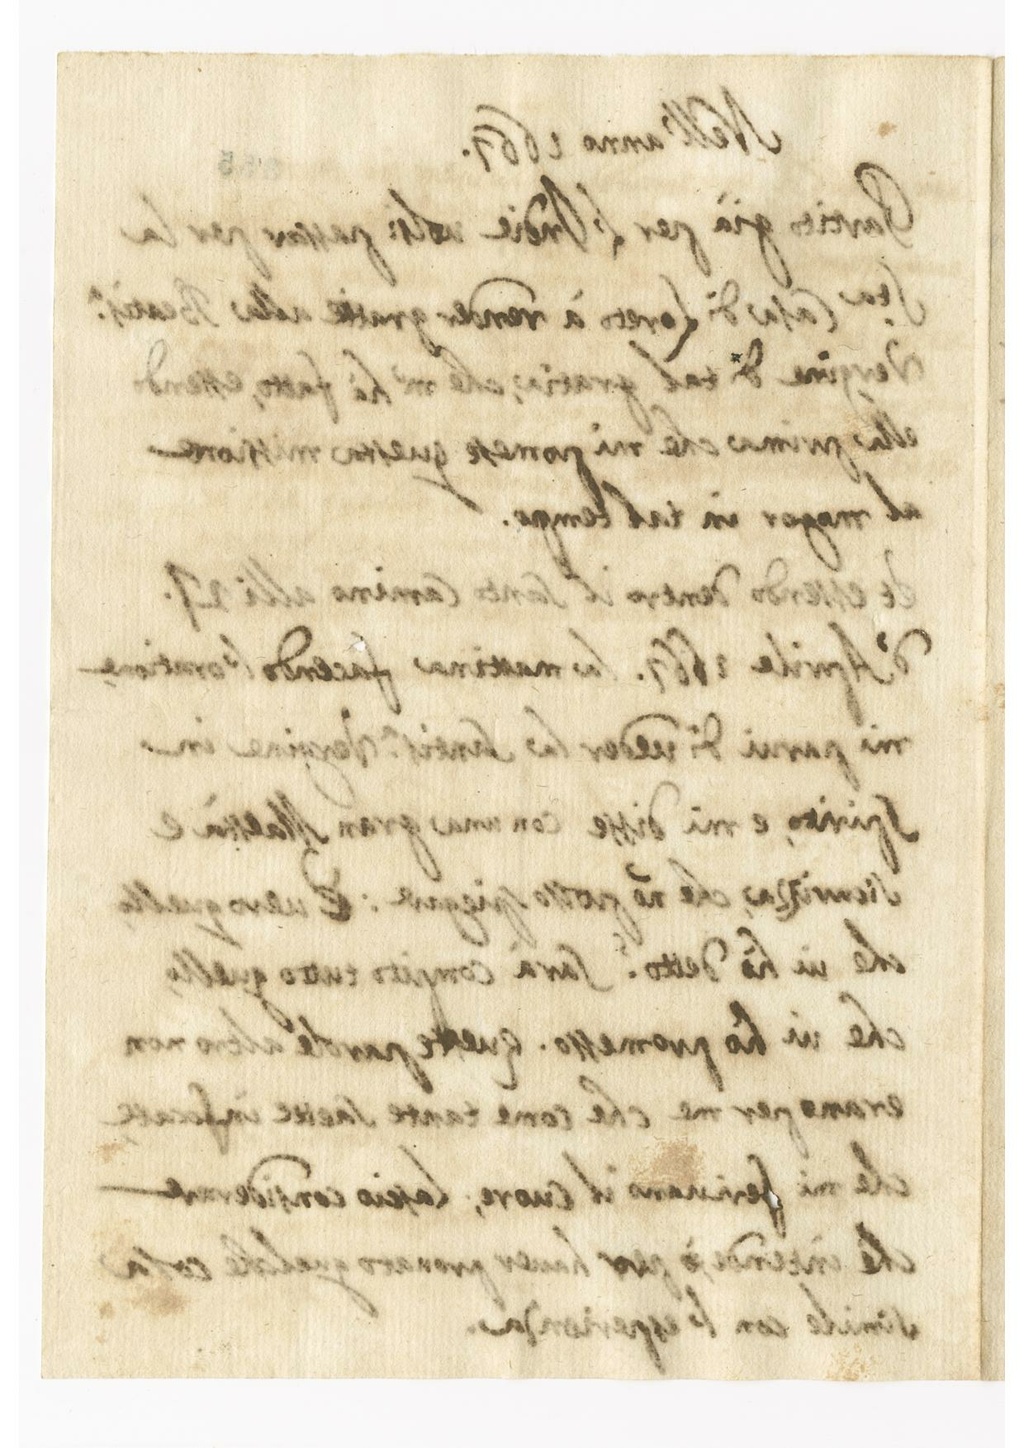 Nell'anno 1667.
Partito già per l'Indie volsi passar per la
S.ta Casa di Loreto à render gratie alla Beatiss.a
Vergine di tal gratia, che m'hà fatto, essendo
ella prima che mi promesse questa missione
al mogor in tal tempo.
Et essendo dentro il santo Camino alli 27.
d'Aprile 1667. la mattina facendo l'oratione,
mi parui di ueder la Santiss.a Vergine in
spirito, e mi disse con una gran Maestà e
sicurezza, che nō posso spiegare: È uero quello,
che ui hò detto? sarà compito tutto quello,
che ui hò promesso. Queste parole altro non
erano per me che come tante saette infocate,
che mi feriuano il Cuore; lascio considerare
che intende, per hauer prouato qualche cosa
simile con l'esperienza.